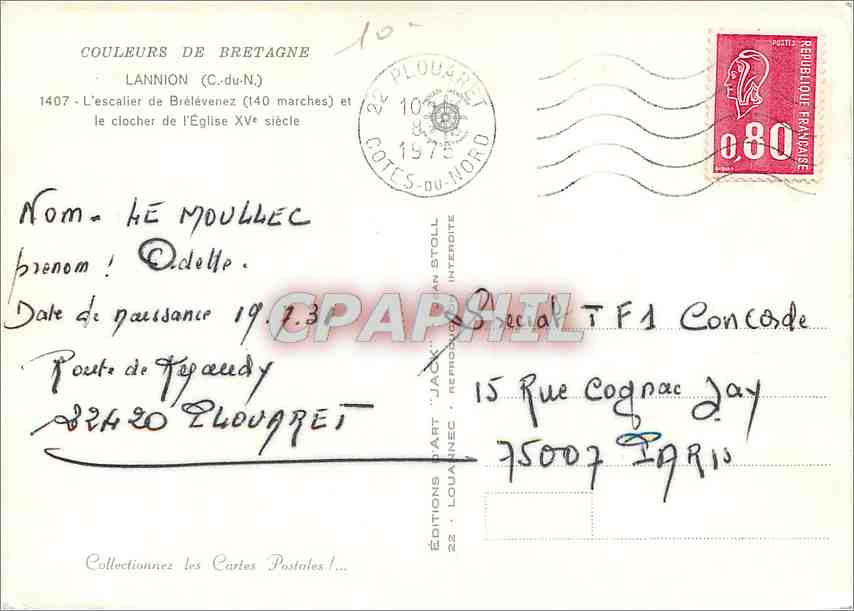 COULEURS DE BRETAGNE
LANNION (C.-du-N.)
1407 - L'escalier de Brélévenez (140 marches) et
le clocher de l'Église XVe siècle
10-
22 PLOUARET
10
8
1975
COTES-DU-NORD
POSTES
REPUBLIQUE FRANÇAISE
0,80
Nom - LE MOULLEC
prenom ! Odette.
Date de naissance 19.7.31
Route de
22420 PLOUARET
CPAPHIL
ÉDITIONS D'ART "JACK" STOLL
22 - LOUANNEC - REPRODUCTION INTERDITE
Special TF1 Concorde
15 Rue Cognac Jay
75007 PARIS
Collectionnez les Cartes Postales !...